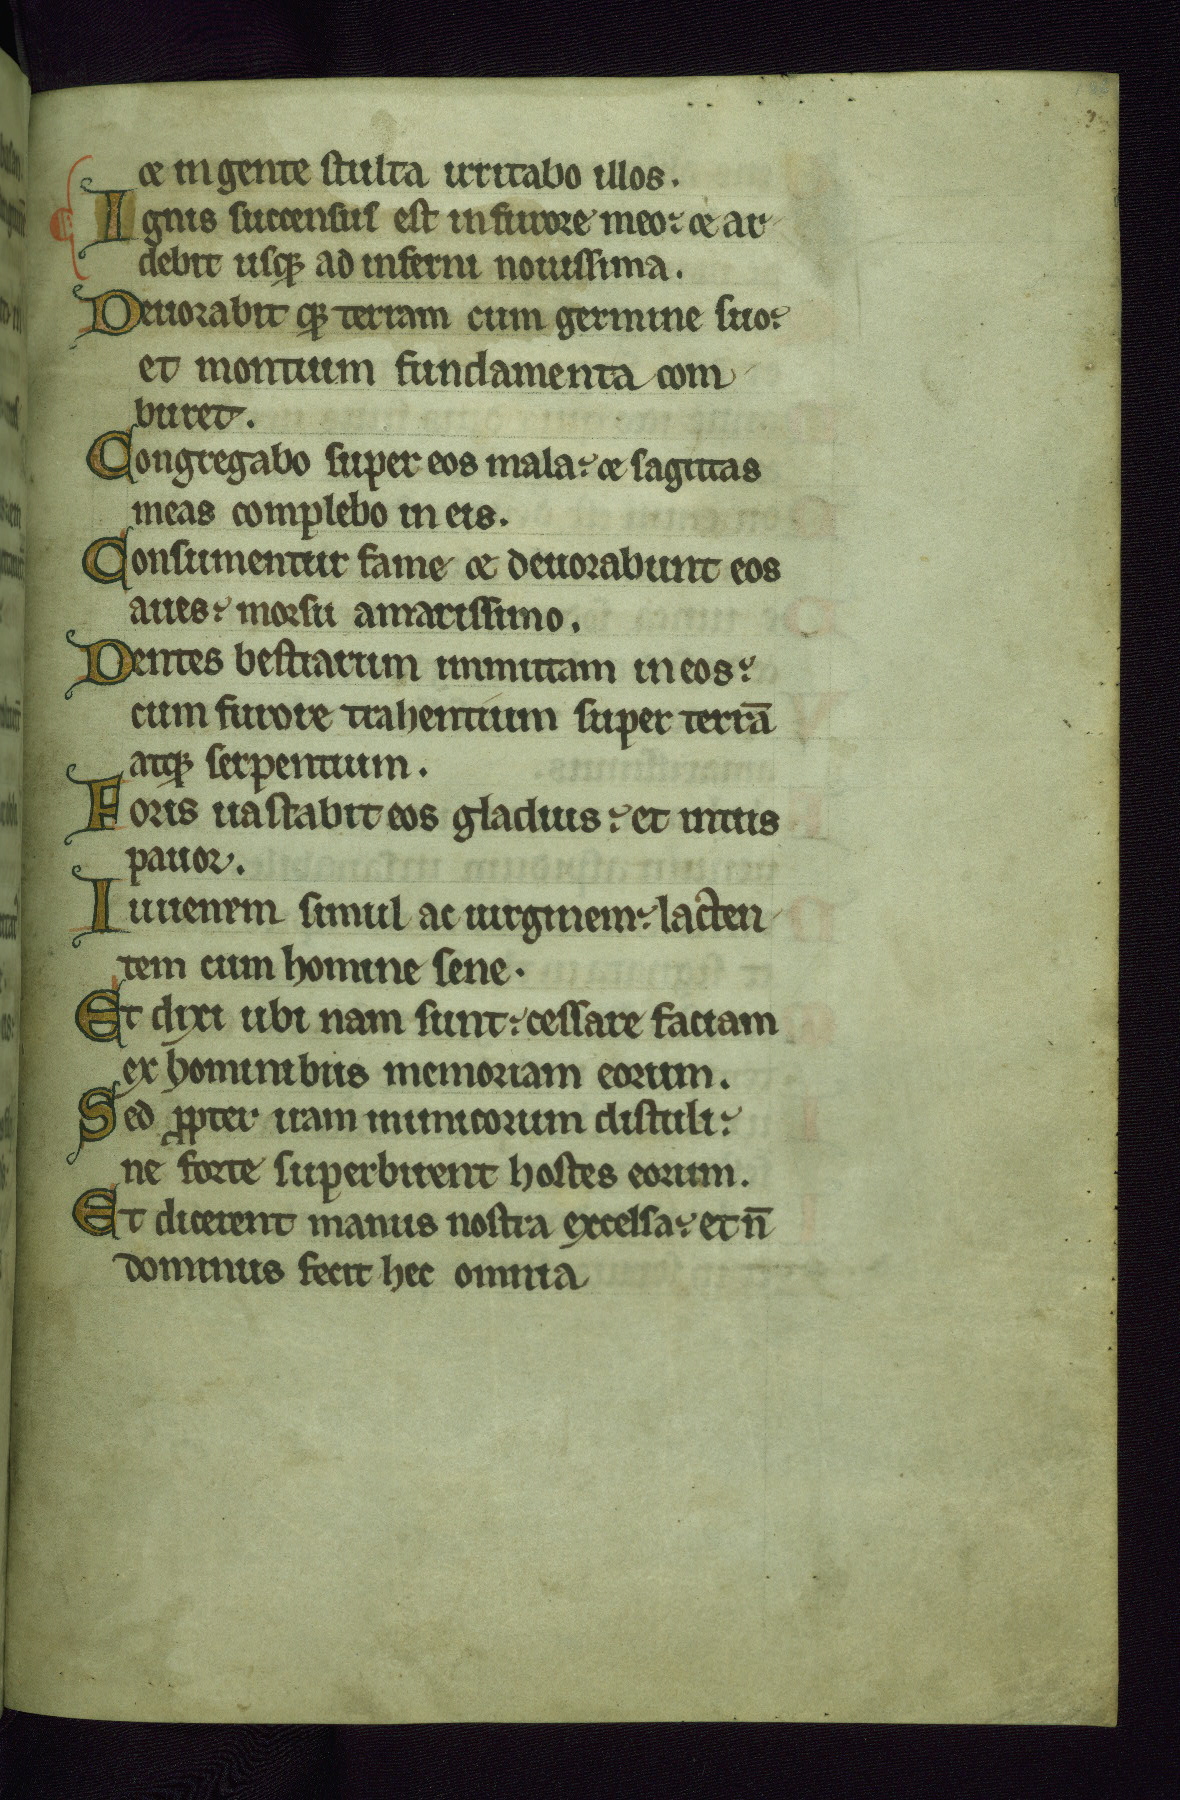 et in gente stulta irritabo illos.
Ignis succensus est in furore meo: et ar
debit usq; ad inferni nouissima.
Deuorabit q; terram cum germine suo:
et montium fundamenta com
buret.
Congregabo super eos mala: et sagittas
meas complebo in eis.
Consumentur fame et deuorabunt eos
aues: morsu amarissimo.
Dentes bestiarum immittam in eos:
cum furore trahentium super terrā
atq; serpentium.
Foris uastabit eos gladius: et intus
pauor.
Iuuenem simul ac uirginem: lacten
tem cum homine sene.
Et dixi ubi nam sunt: cessare faciam
ex hominibus memoriam eorum.
Sed ꝓpter iram inimicorum distuli:
ne forte superbirent hostes eorum.
Et dicerent manus nostra excelsa: et n̄
dominus fecit hec omnia